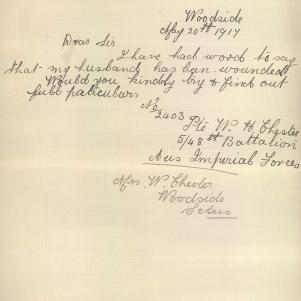 Woodside
May 20th 1917
Dear Sir
I have had word to say
that my husband has ben wounded
Would you kindly try & find out
full paticulurs
No
2403
Pte W. H. Chester
5/48th Battalion
Aus Imperial Forces
Mrs. W. Chester
Woodside
S Aus